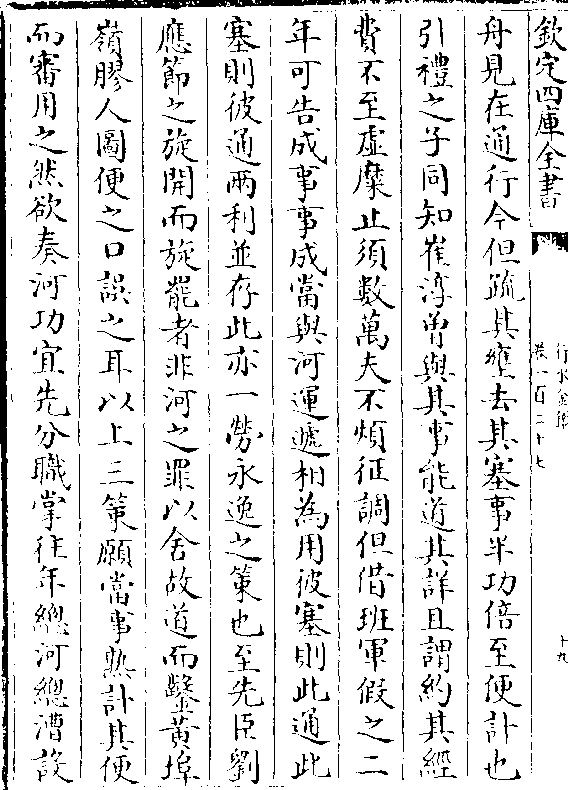 欽定四庫全書
行水金鑑
卷一百二十七
十九
舟見在通行今但疏其壅去其塞事半功倍至便計也
引禮之子同知崔淳曽與其事能道其詳且謂約其經
費不至虚糜止須數萬夫不煩征調但借班軍假之二
年可告成事事成當與河運遞相為用彼塞則此通此
塞則彼通兩利並存此亦一勞永逸之策也至先臣劉
應節之旋開而旋罷者非河之罪以舍故道而鑿黄埠
嶺膠人圖便之口誤之耳以上三策願當事熟計其便
而審用之然欲奏河功宜先分職掌往年總河總漕設